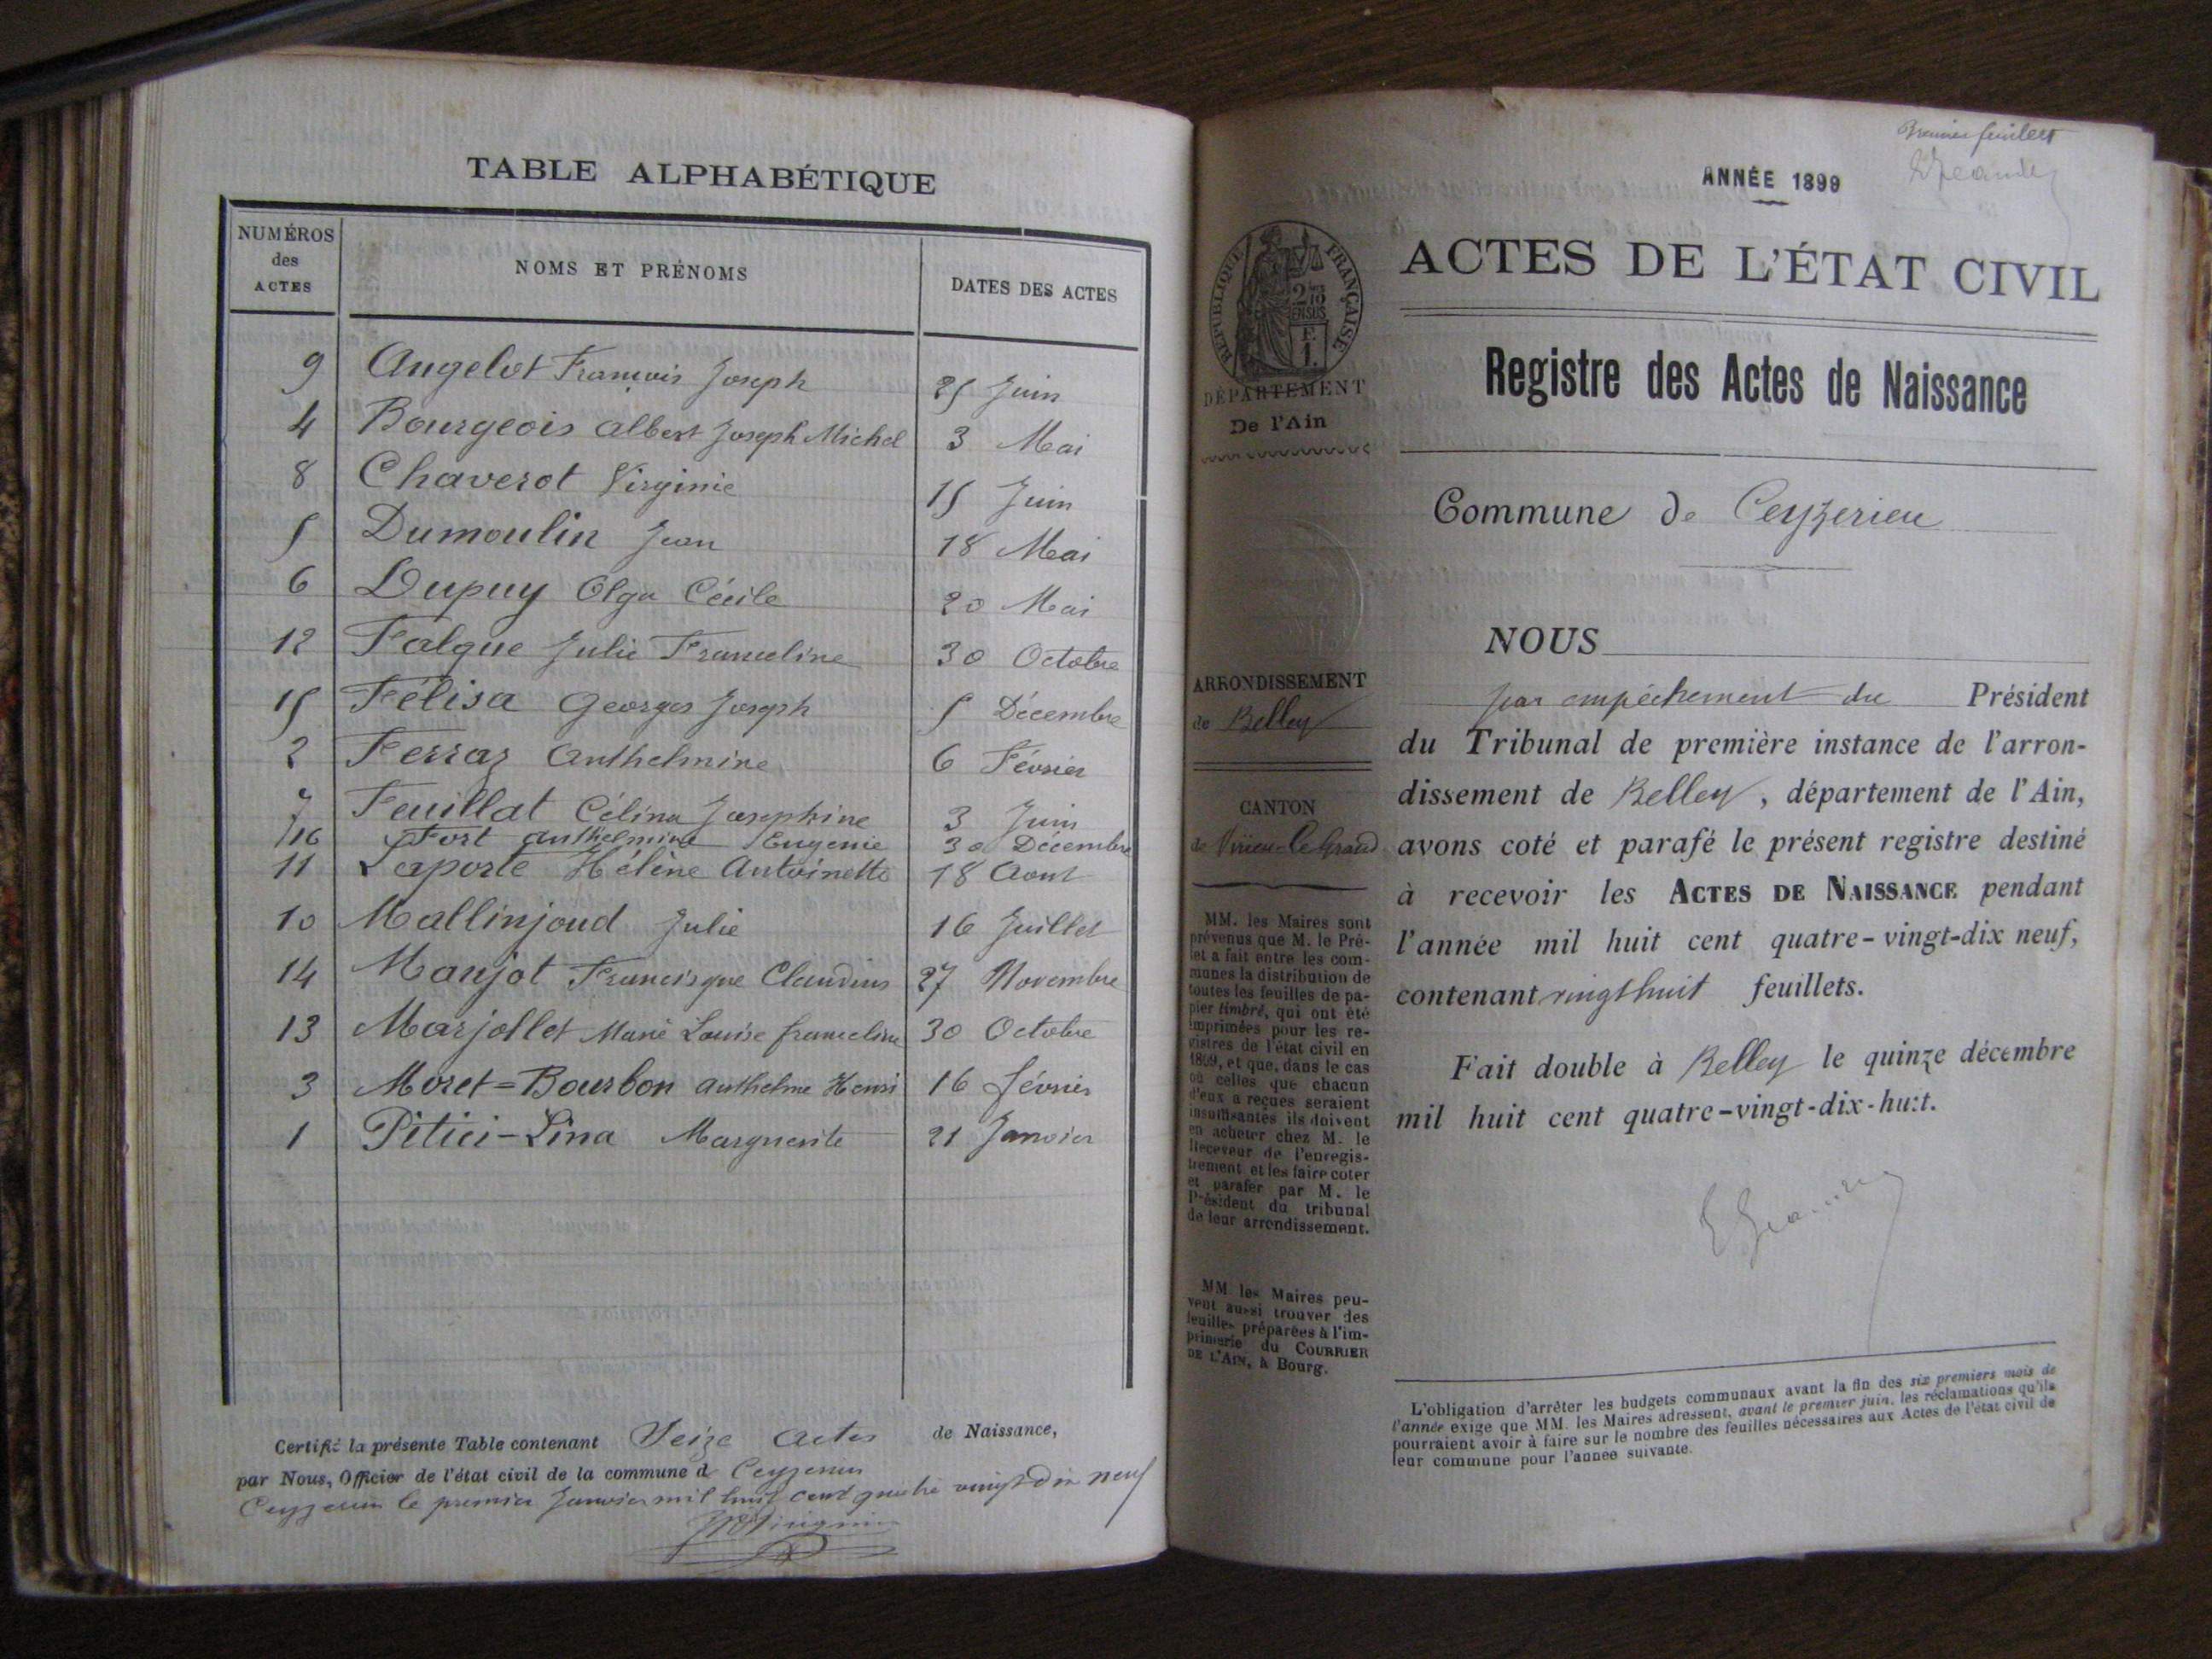 TABLE ALPHABÉTIQUE
NUMÉROS des ACTES
NOMS ET PRÉNOMS
DATES DES ACTES
9 Augelot François Joseph 25 Juin
4 Bourgeois Albert Joseph Michel 3 Mai
8 Chaverot Virginie 15 Juin
5 Dumoulin Jean 18 Mai
6 Dupuy Olga Cécile 20 Mai
12 Falque Julie Franceline 30 Octobre
15 Félisa Georges Joseph 5 Décembre
2 Ferraz Anthelmine 6 Février
7 Feuillat Célina Josephine 3 Juin
16 Fort Anthelmine Eugenie 30 Décembre
11 Laporte Hélène Antoinette 18 Aout
10 Mallinjoud Julie 16 Juillet
14 Manjot Francisque Claudius 27 Novembre
13 Marjollet Marie Louise franceline 30 Octobre
3 Moret=Bourbon Anthelme Henri 16 février
1 Pitici-Lina Marguerite 21 Janvier
Certifié la présente Table contenant Seize Actes de Naissance,
par Nous, Officier de l'état civil de la commune d Ceyzerieu
Ceyzerieu le premier Janvier mil huit cent quatre vingt dix neuf
Premier feuillet
ANNÉE 1899
ACTES DE L'ÉTAT CIVIL
Registre des Actes de Naissance
Commune de Ceyzerieu
NOUS
par empêchement du Président
du Tribunal de première instance de l'arron-
dissement de Belley, département de l'Ain,
avons coté et parafé le présent registre destiné
à recevoir les ACTES DE NAISSANCE pendant
l'année mil huit cent quatre-vingt-dix neuf,
contenant vingt huit feuillets.
Fait double à Belley le quinze décembre
mil huit cent quatre-vingt-dix-huit.
L'obligation d'arrêter les budgets communaux avant la fin des six premiers mois de
l'année exige que MM. les Maires adressent, avant le premier juin, les réclamations qu'ils
pourraient avoir à faire sur le nombre des feuilles nécessaires aux Actes de l'état civil de
leur commune pour l'année suivante.
RÉPUBLIQUE FRANÇAISE
DÉPARTEMENT
De l'Ain
ARRONDISSEMENT
de Belley
CANTON
de Virieu-le-Grand
MM. les Maires sont
prévenus que M. le Pré-
fet a fait entre les com-
munes la distribution de
toutes les feuilles de pa-
pier timbré, qui ont été
imprimées pour les re-
gistres de l'état civil en
1899, et que, dans le cas
où celles que chacun
d'eux a reçues seraient
insuffisantes ils doivent
en acheter chez M. le
Receveur de l'enregis-
trement et les faire coter
et parafer par M. le
Président du tribunal
de leur arrondissement.
MM les Maires peu-
vent aussi trouver des
feuilles préparées à l'im-
primerie du COURRIER
DE L'AIN, à Bourg.